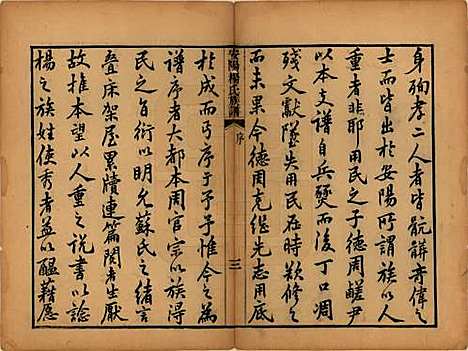 身殉孝二人者皆骯髒奇偉之
士而皆出於安陽所謂族以人
重者非耶用民之子德周鹺尹
以本支譜自兵燹而後丁口凋
殘文獻墜失用民在時欲修之
而未果今德周克繼先志用底
安陽楊氏族譜
序
三
於成而丐序于予予惟今之為
譜序者大都本周官宗以族得
民之自衍以明允蘇氏之緒言
疊床架屋累牘連篇閱者生厭
故推本望以人重之說書以諗
楊之族姓使秀者益以醞藉愿